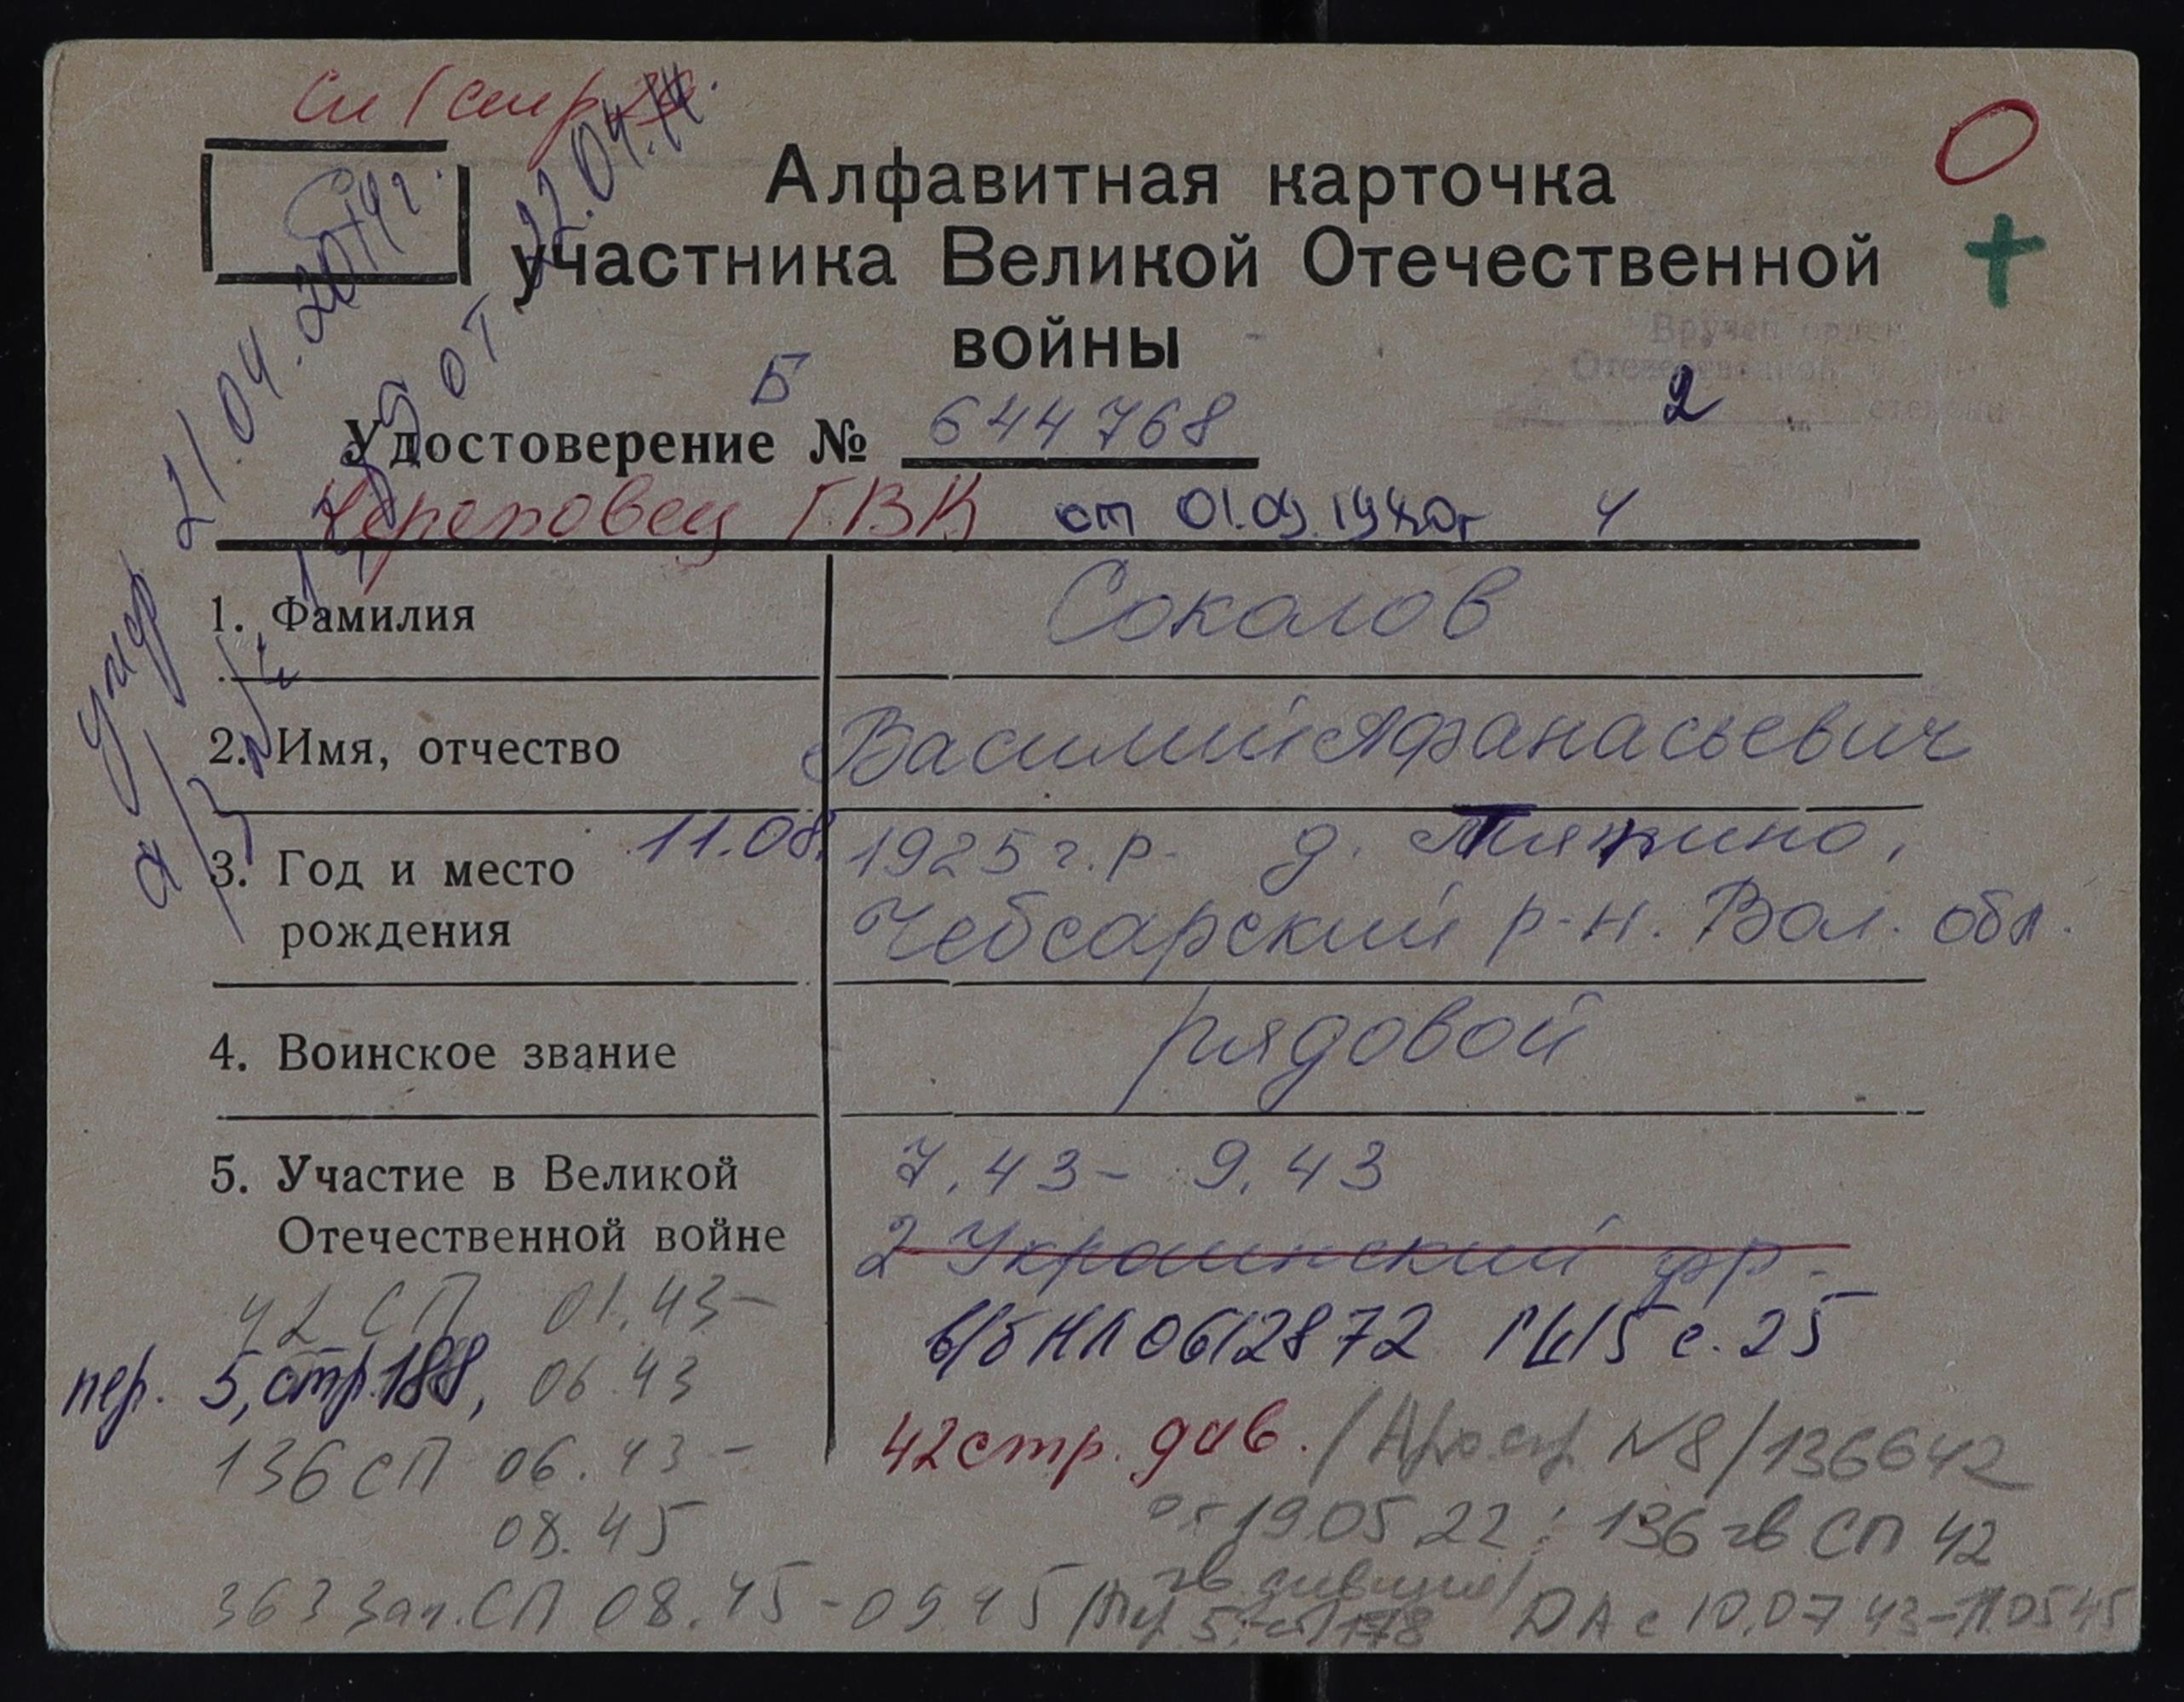 Алфавитная карточка
участника Великой Отечественной
войны
Вручен орден
Отечественной войны
2 степени
Б
Удостоверение № 644768
Череповец ГВК от 01.09.1980г
1. Фамилия Соколов
2. Имя, отчество Василий Афанасьевич
3. Год и место 11.08. 1925 г.р. д.
рождения Чебсарский р-н. Вол. обл.
4. Воинское звание рядовой
5. Участие в Великой 7.43 - 9.43
Отечественной войне 2 Украинский фр.
42 СП 01.43-
в/б НЛ 0612872 ГШ5 с. 25
пер. 5, стр. 188, 06.43
42 стр. див. / Арх. спр. №8/136642
136 СП 06.43-
08.45
от 19.05.22: 136 гв СП 42
гв дивизии/
363 Зап. СП 08.45-09.45 ДА с 10.07.43-11.05.45
умер 21.04.2014г.
а/з № от 22.04.14.